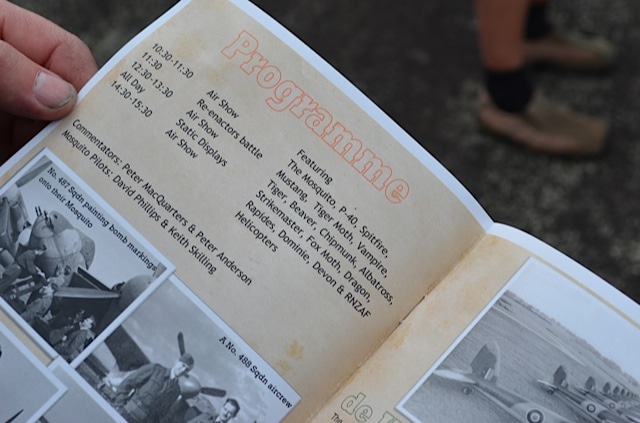 Programme
10:30-11:30 Air Show
11:30 Re-enactors battle
12:30-13:30 Air Show
All Day Static Displays
14:30-15:30 Air Show
Featuring
The Mosquito, P-40, Spitfire,
Mustang, Tiger Moth, Vampire,
Tiger, Beaver, Chipmunk, Albatross,
Strikemaster, Fox Moth, Dragon,
Rapides, Dominie, Devon & RNZAF
Helicopters
Commentators: Peter MacQuarters & Peter Anderson
Mosquito Pilots: David Phillips & Keith Skilling
No. 487 Sqdn painting bomb markings
onto their Mosquito
A No. 488 Sqdn aircrew
de
The